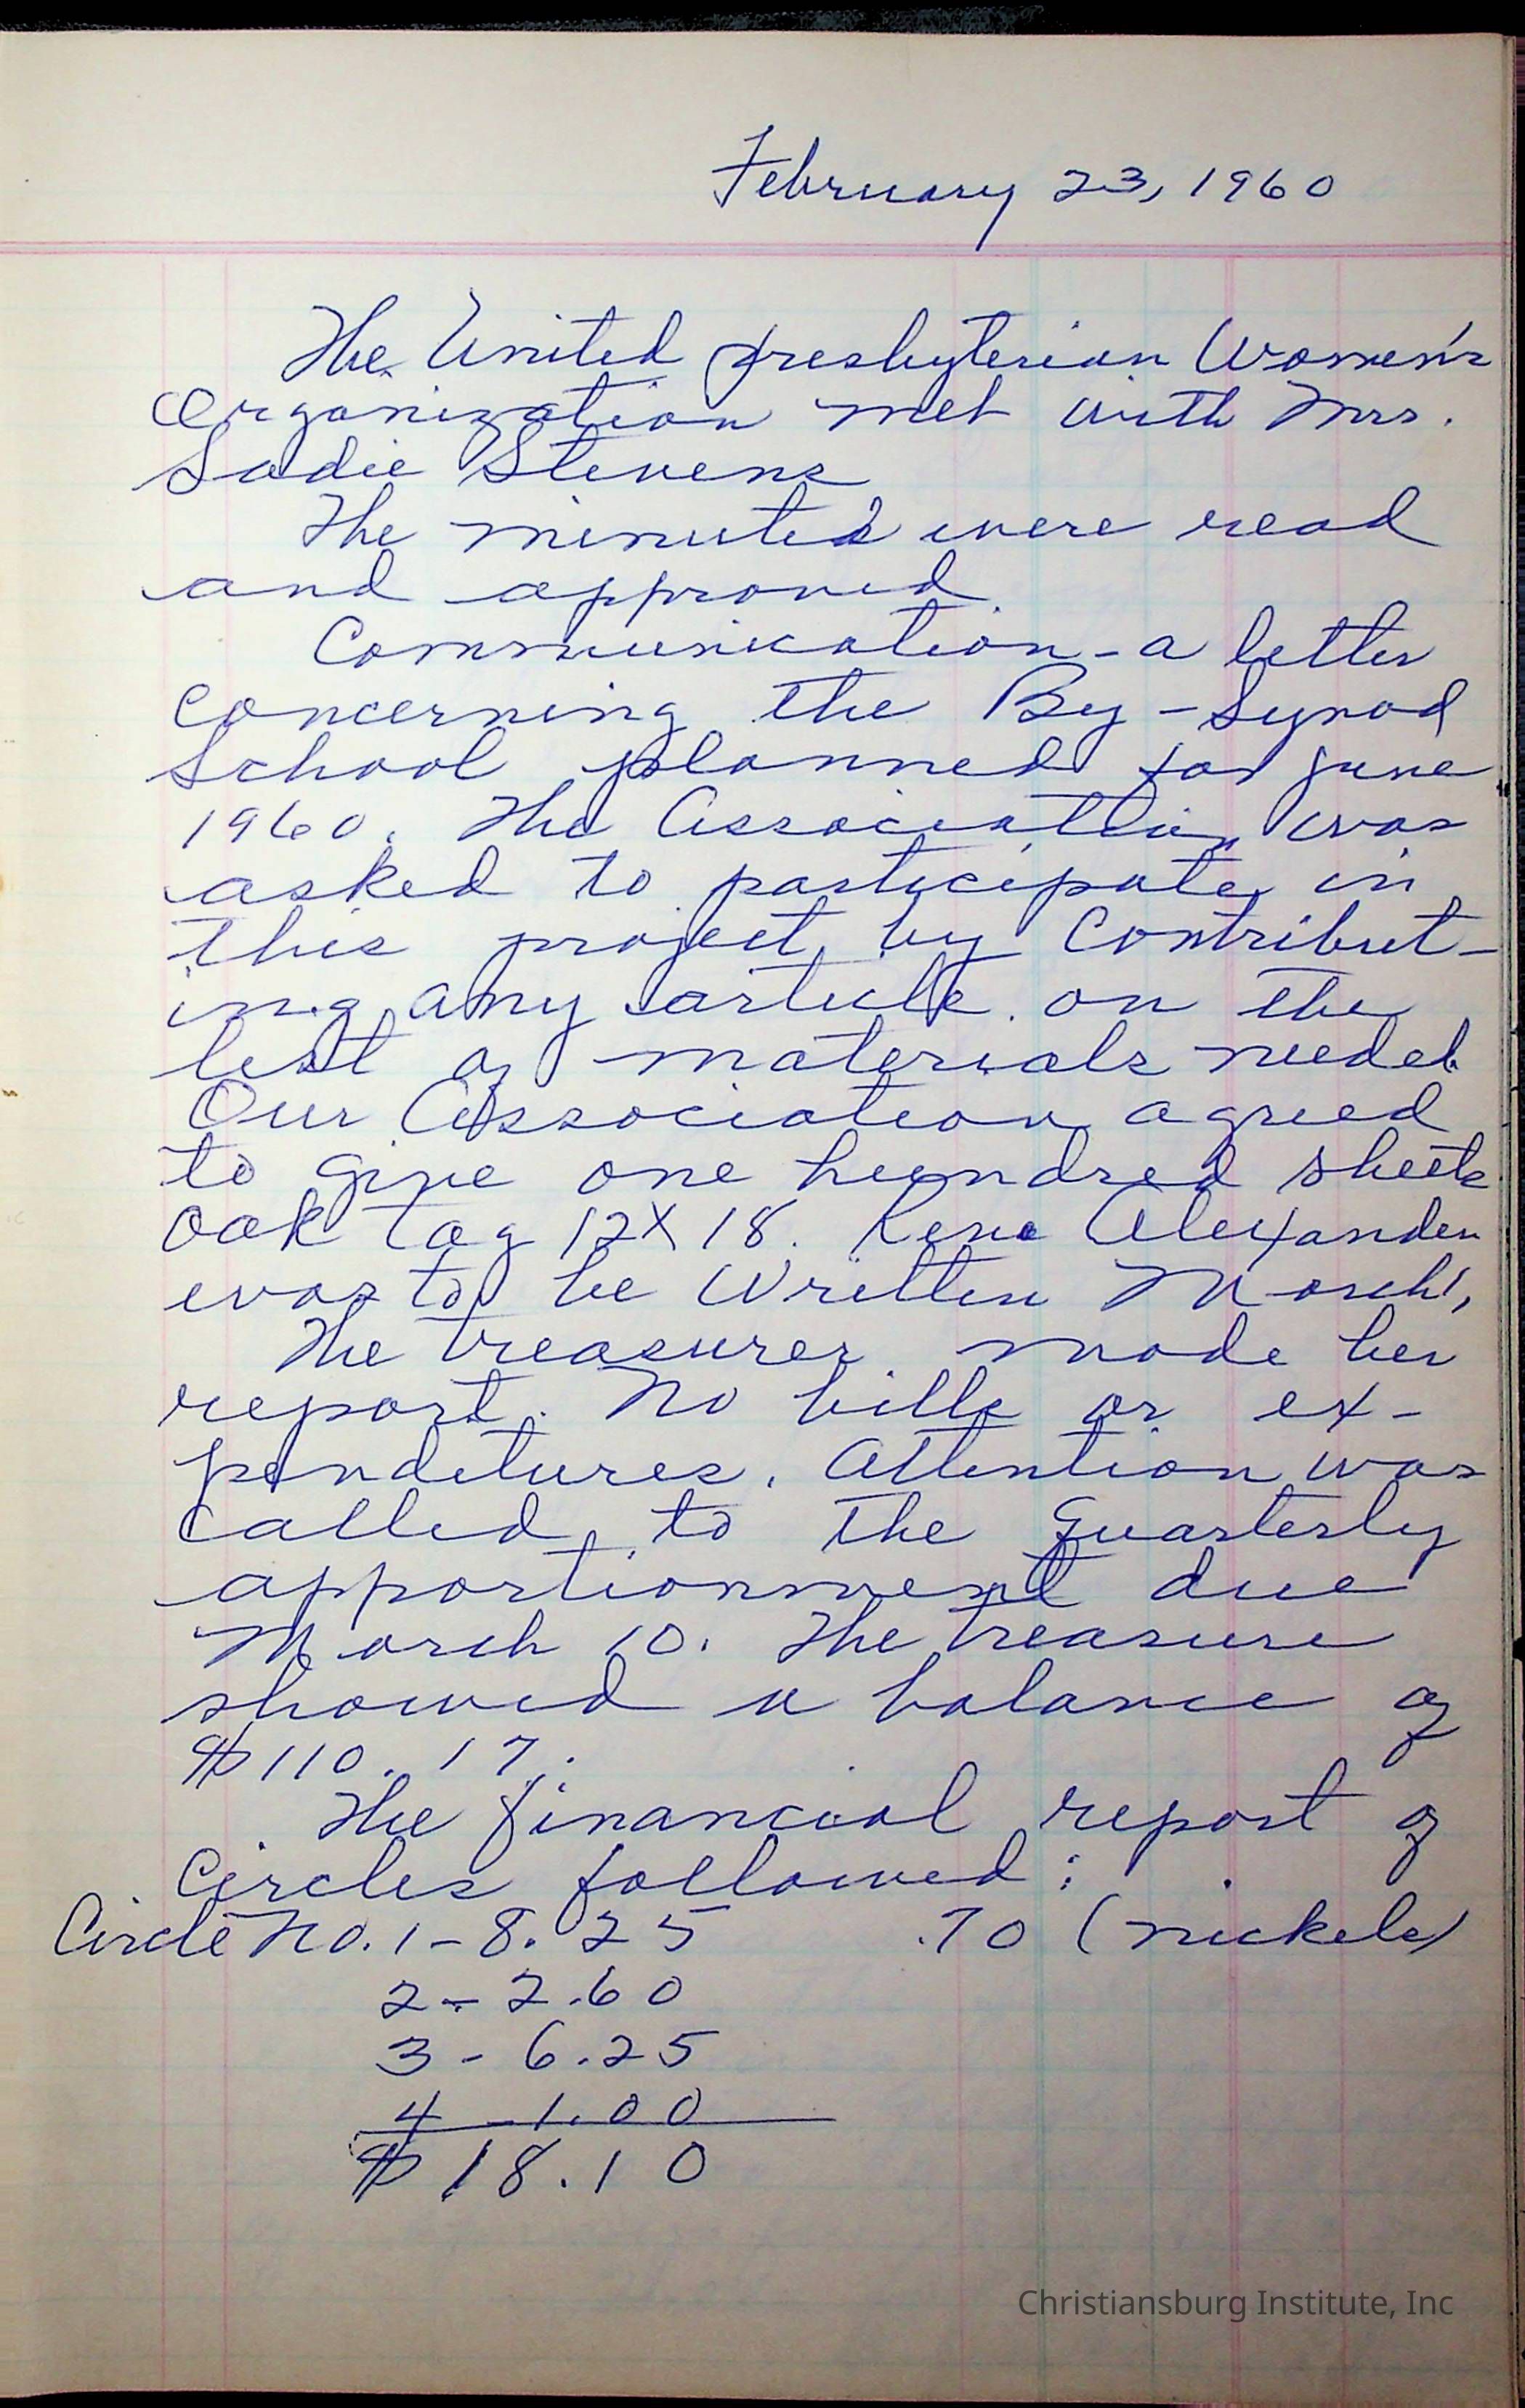 February 23, 1960
The United Presbyterian Women's
Organization met with Mrs.
Sadie Stevens
The minutes were read
and approved.
Communication - a letter
concerning the By-Synod
School planned for June
1960. The Association was
asked to participate in
this project by Contribut-
ing any article on the
list of materials needed.
Our Association agreed
to give one hundred sheets
oak tag 12X18. Rena Alexander
was to be written March 1,
The treasurer made her
report. No bills or ex-
penditures. Attention was
called to the Quarterly
apportionment due
March 10. The treasure
showed a balance of
$110.17.
The financial report of
Circles followed:
Circle No. 1 - 8.25 .70 (nickels)
2 - 2.60
3 - 6.25
4 - 1.00
$18.10
Christiansburg Institute, Inc